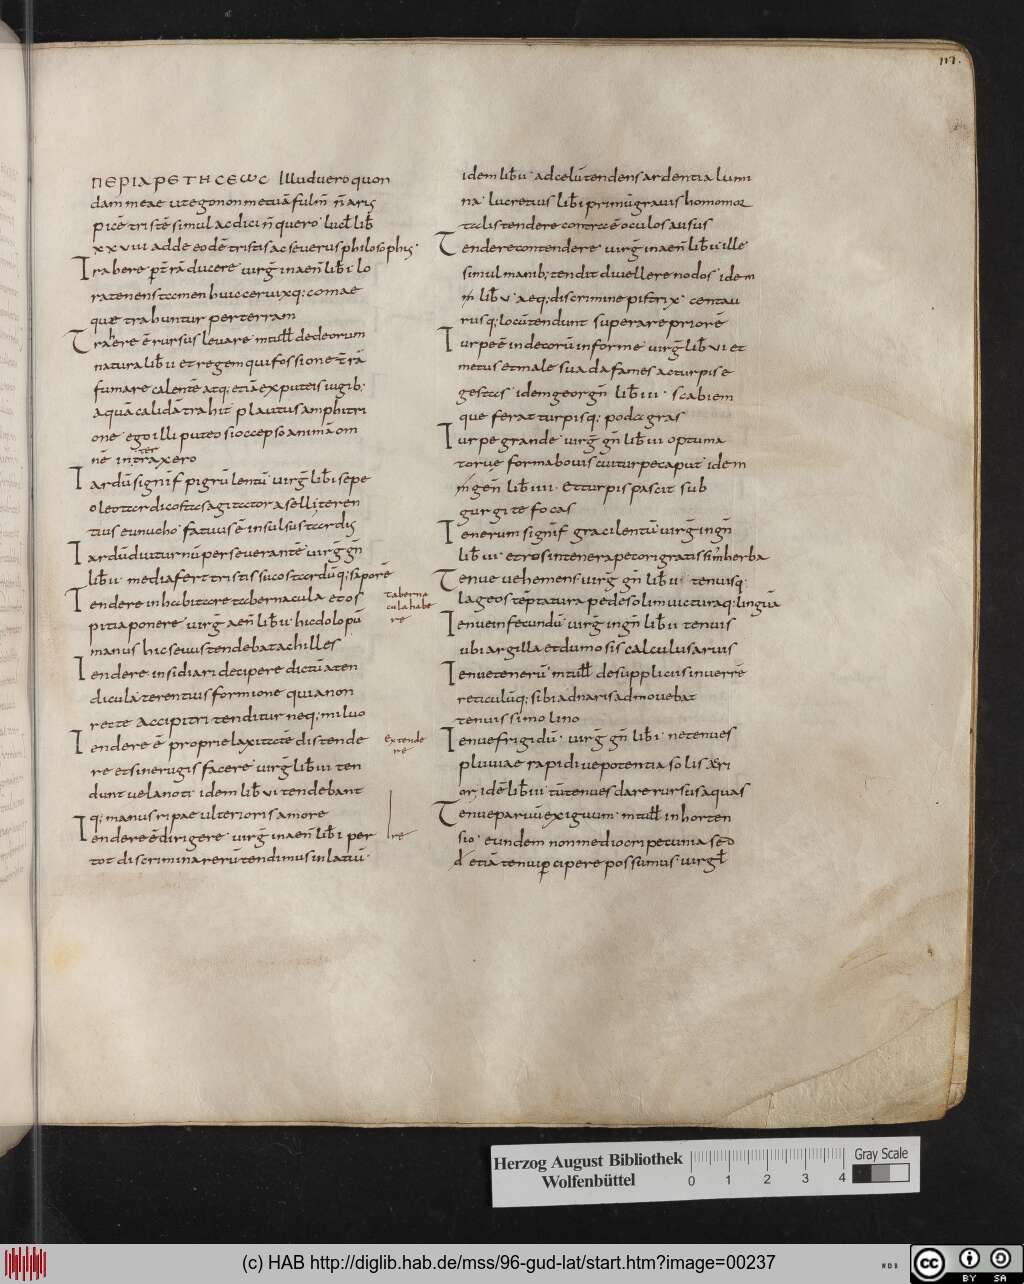 117.
ΠΕΡΙΑΡΕΤΗϹΕωϹ Illud vero quon
dam meae ut ego non metuā fulm̄ n̄ aris
picē tristē simul ac dici n̄ quero lucł lib̄
xxviii adde eodē tristis ac severus philosophus·
Trahere
ratenens tamen huic cervixq; comae
quae trahuntur per terram
Trahere ē rursus levare m tułł de deorum
natura lib̄ ii et regem quifossione t̄ rā
fumare calentē atq; etiā ex puteis iugib;
aquā calidā trahit plautus amphitri
one ego illi puteo si occepso animā om
nē intraxero
Tardū signif̄ pigrū lentū virḡ lib̄ i sepe
oleo tardi costas agitator aselli teren
tius eunucho fatuus ē insulsus tardus
Tardū diuturnū perseverantē virḡ ḡn̄
lib̄ ii media fert tristis sucos tardūq; saporē
Tendere in habitare tabernacula et os
pitia ponere virḡ aen̄ lib̄ ii hic dolopū
manus hic sevus tendebat achilles
Tendere insidiari decipere dictū a ten
dicula terentius formione quia non
rete accipitri tenditur neq; miluo
Tendere ē proprie laxitatē distende
re et sine rugis facere virḡ lib̄ iii ten
dunt vela noti idem lib̄ vi tendebant
q; manus ripae ulterioris amore
Tendere ē dirigere virḡ in aen̄ lib̄ i per
tot discrimina rerū tendimus in latiū·
taberna
cula habe
re
extende
re
re
idem lib̄ ii ad celū tendens ardentia lumi
na lucretius lib̄ i primū graius homo mor
talis tendere contra ē oculos ausus
Tendere contendere virḡ in aen̄ lib̄ ii ille
simul manib; tendit divellere nodos idem
in lib̄ v aeq; discrimine pistrix centau
rusq; locū tendunt superare priorē
Turpe ē indecorū informe virḡ lib̄ vi et
metus et malesuada fames ac turpis e
gestas idem georḡn̄ lib̄ iii scabiem
que ferat turpisq; podagras
Turpe grande virḡ ḡn̄ lib̄ iii optuma
torve forma bovis cui turpe caput idem
in gen̄ lib̄ iiii et turpis pascit sub
gurgite focas
Tenerum signif̄ gracilentū virḡ in ḡn̄
lib̄ iii et ros in tenera pecori gratissim̄ herba
Tenue vehemens virḡ ḡn̄ lib̄ ii tenuisq·
lageos tēptatura pedes olim victuraq; linguā
Tenue infecundū virḡ in ḡn̄ lib̄ ii tenuis
ubi argilla et dumosis calculus arvis
Tenue tenerū m tułł de suppliciis in verrē
reticulūq; sibi ad naris admovebat
tenuissimo lino
Tenue frigidū virḡ ḡn̄ lib̄ i ne tenues
pluviae rapidive potentia solis acri
or; idē lib̄ iii tū tenues dare rursus aquas
Tenue parvū exiguum m tułł in horten
sio eundem non mediocri pecunia sed
d̄ etiā tenui p̄cipere possumus virgł
Herzog August Bibliothek
Wolfenbüttel
0 1 2 3 4
Gray Scale
(c) HAB http://diglib.hab.de/mss/96-gud-lat/start.htm?image=00237
WDB
cc BY SA